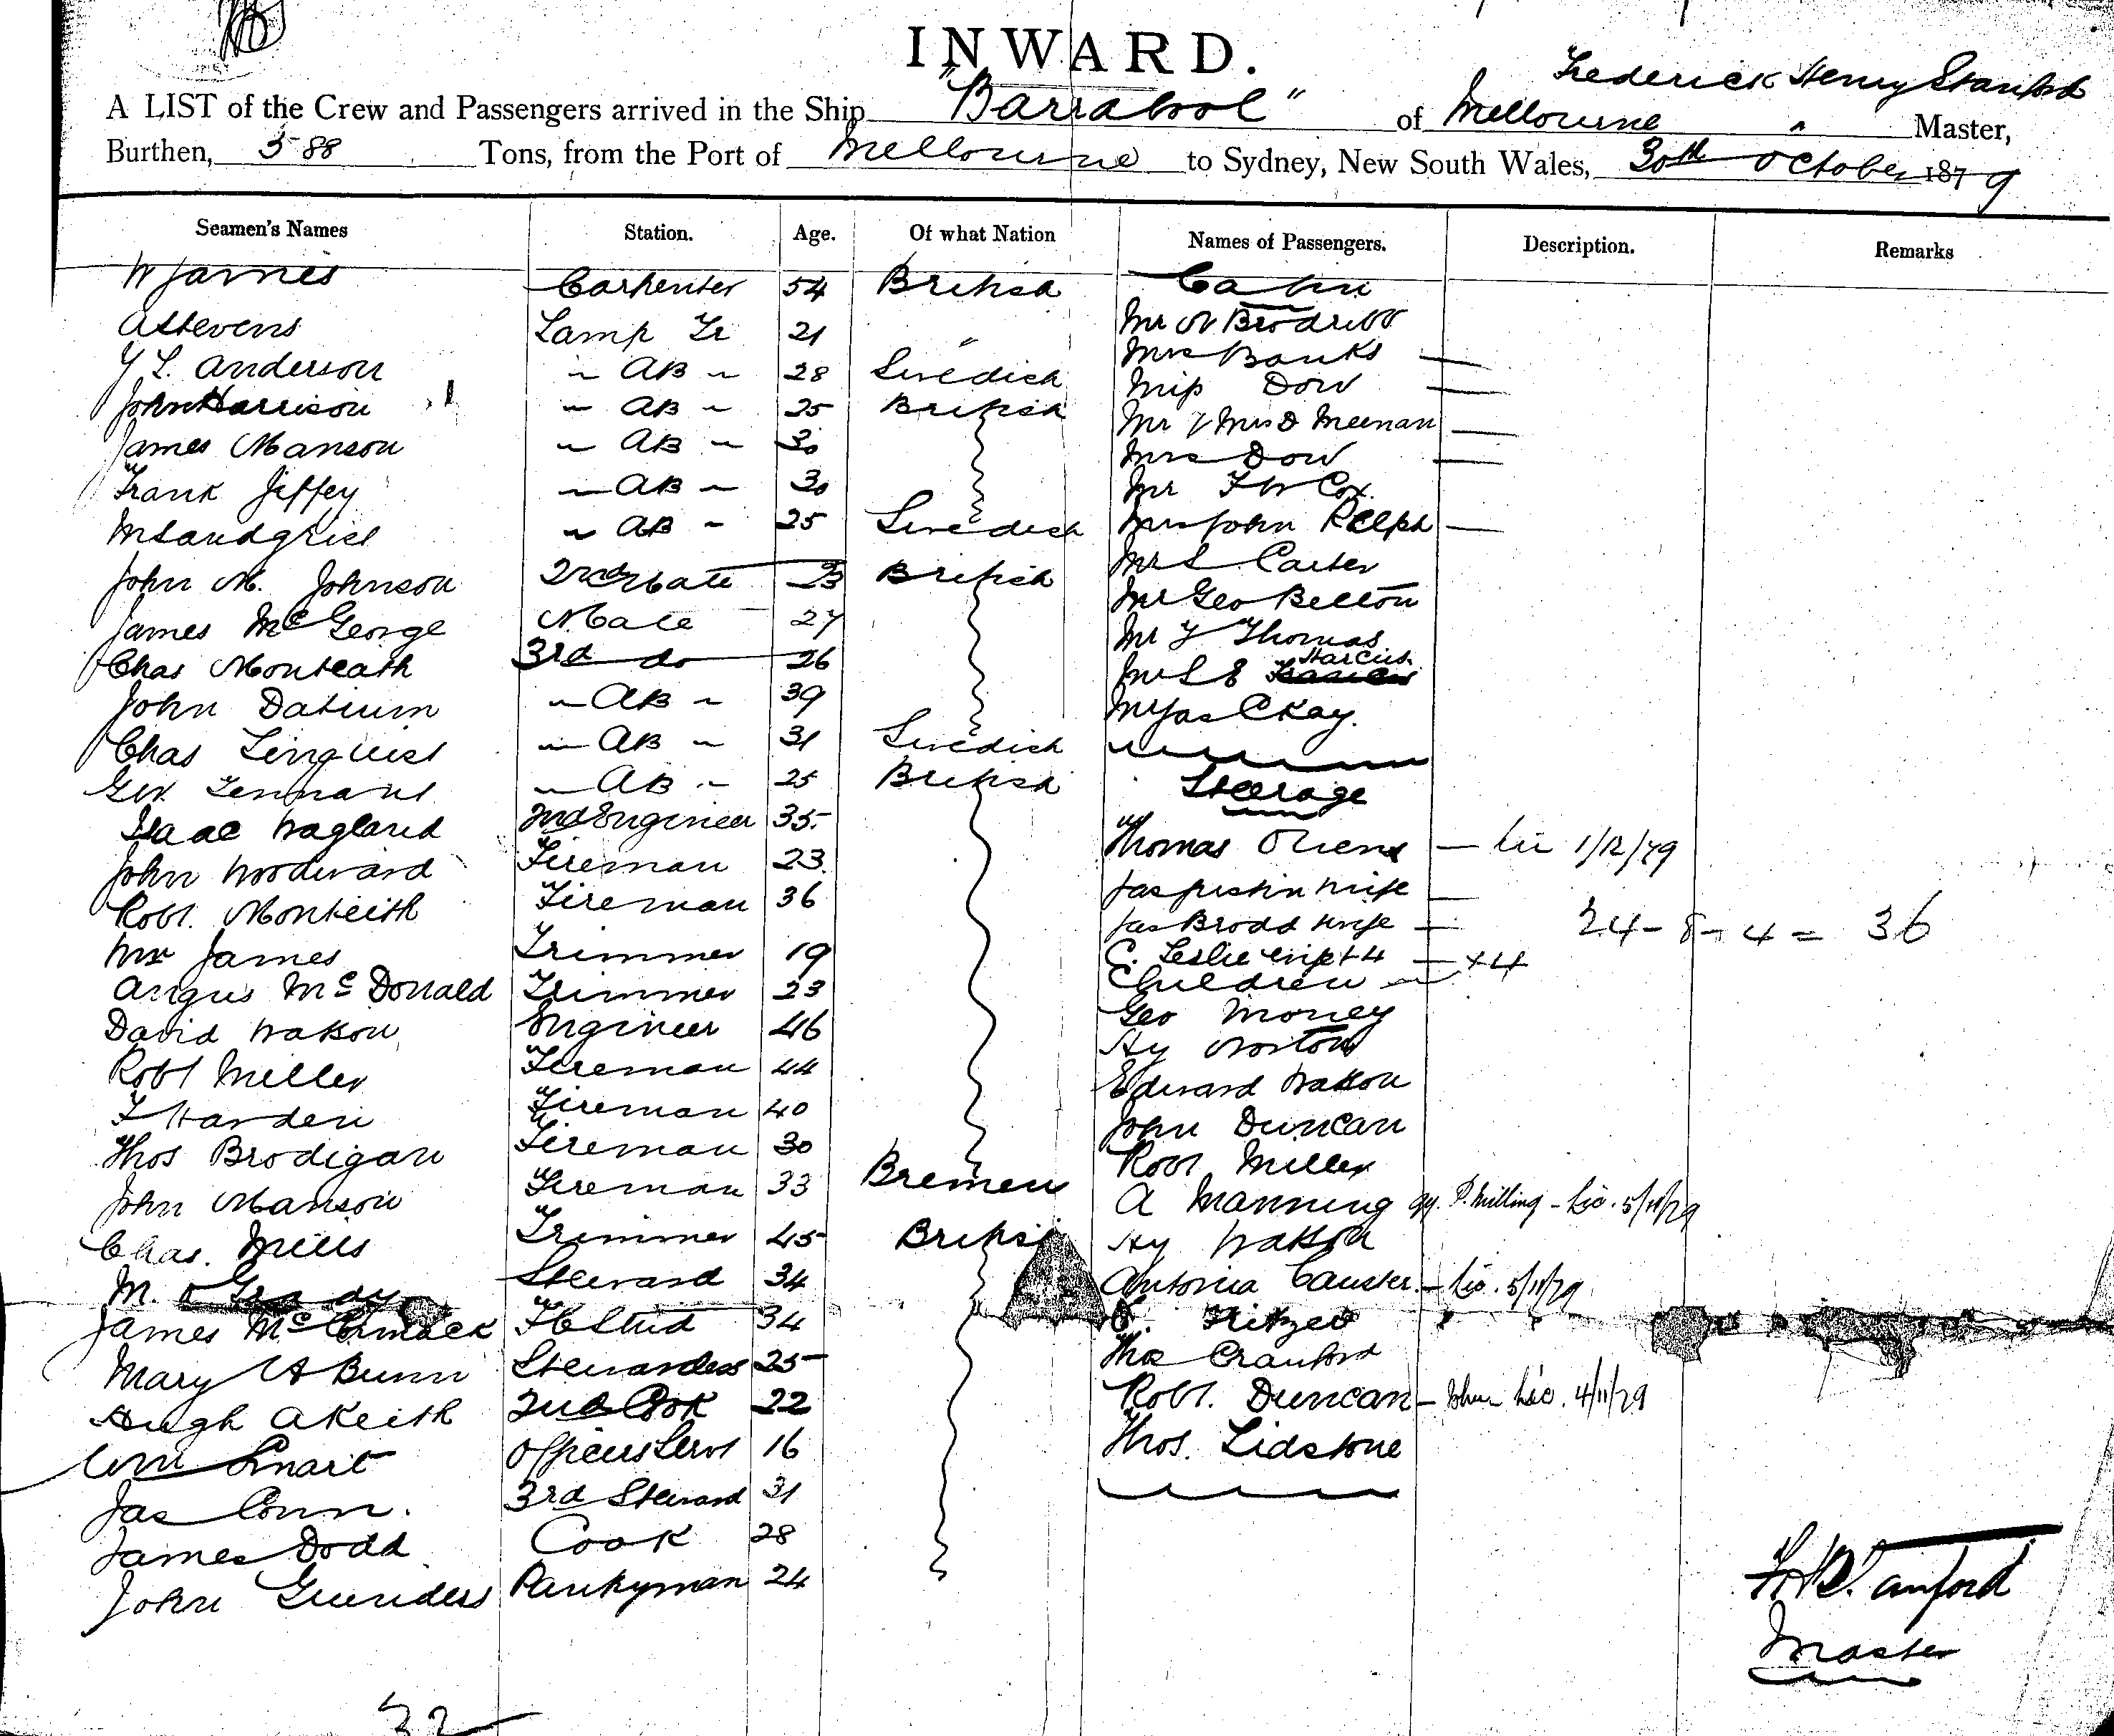 INWARD.
Frederick Henry Stanford
A LIST of the Crew and Passengers arrived in the Ship "Barrabool" of Melbourne " Master,
Burthen, 588 Tons, from the Port of Melbourne to Sydney, New South Wales, 30th October 1879
Seamen's Names Station. Age. Of what Nation Names of Passengers. Description. Remarks
W James Carpenter 54 British Cabin
A Stevens Lamp Tr 21 " Mr W Brodribb
Y L. Anderson " AB " 28 Swedish Mrs Banks —
John Harrison " AB " 25 British Miss Dow —
James Manson " AB " 30 Mr & Mrs D Meenan —
Frank Jeffey " AB " 30 Mrs Dow —
M Sandgrist " AB " 25 Swedish Mr F W Cox
John M. Johnson 2nd Mate 23 British Mrs John Relph —
James McGeorge Mate 27 Mr S Carter
Chas Monteath 3rd do 26 Mr Geo Belton
John Datium " AB " 39 Mr F Thomas
Chas Linquist " AB " 31 Swedish Mr S E Harcus
Geo. Tennant " AB " 25 British Mr Jas C Kay.
Steerage
Isaac Wagland 2nd Engineer 35 Thomas Owens — Lic 1/12/79
John Woodward Fireman 23 Jas wife —
Robt. Monteith Fireman 36 Jas Brodd wife — 24 - 8 - 4 = 36
Wm James Trimmer 19 C. Leslie wife & 4 — +4
Angus McDonald Trimmer 23 Children
David Watson Engineer 46 Geo Money
Robt Miller Fireman 44 Hy Norton
F Harden Fireman 40 Edward Watson
Thos Brodigan Fireman 30 John Duncan
John Manson Fireman 33 Bremen Robt Miller
Chas. Mills Trimmer 45 British A Manning P. Milling - Lic. 5/11/79
M. O Grady Steward 34 Hy Watson
James McCormack F C Stwd 34 Antonia Causter - Lic. 5/11/79
Mary A Bunn Stewardess 25 Fritzeo
Hugh A Keith 2nd Cook 22 Thos Cranford
Wm Smart Officers Servt 16 Robt. Duncan - Lic. 4/11/79
Jas Conn. 3rd Steward 31 Thos. Lidstone
James Dodd Cook 28
John Gunidess Pantryman 24
F. H. Stanford
Master
32